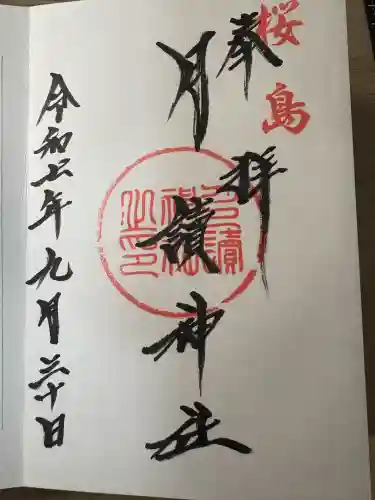 桜島
奉拝
月讀神社
月讀神社之印
令和六年九月三十日